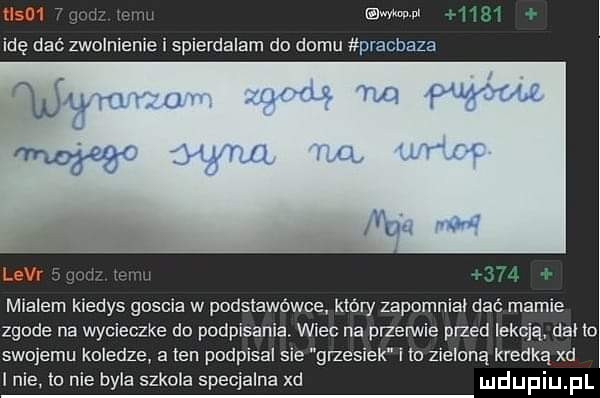 tls01 7 godz. temu wykop.pl +1181 +
idę dać zwolnienie i spierdalam do domu #pracbaza
Wyrarzam zgodę na pujście
mojego syna na urlop.
Moja mamą
LeVr 5 godz. temu +374 +
Mialem kiedys goscia w podstawówce, który zapomnial dać mamie
zgode na wycieczke do podpisania. Wiec na przerwie przed lekcją, dał to
swojemu koledze, a ten podpisal sie "grzesiek" i to zieloną kredką xd
I nie, to nie byla szkola specjalna xd
mdupiu.pl